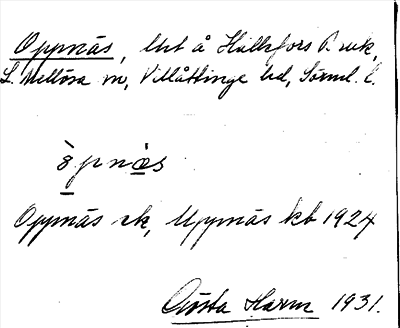 Oppnäs, lht å Hällefors P. ruk,
L. Mellösa sn, Villåttinge hd, Sörml. l.
ò̱pnæ̱s
Oppnäs ek, Uppnäs kb 1924
Gösta Harm 1931.